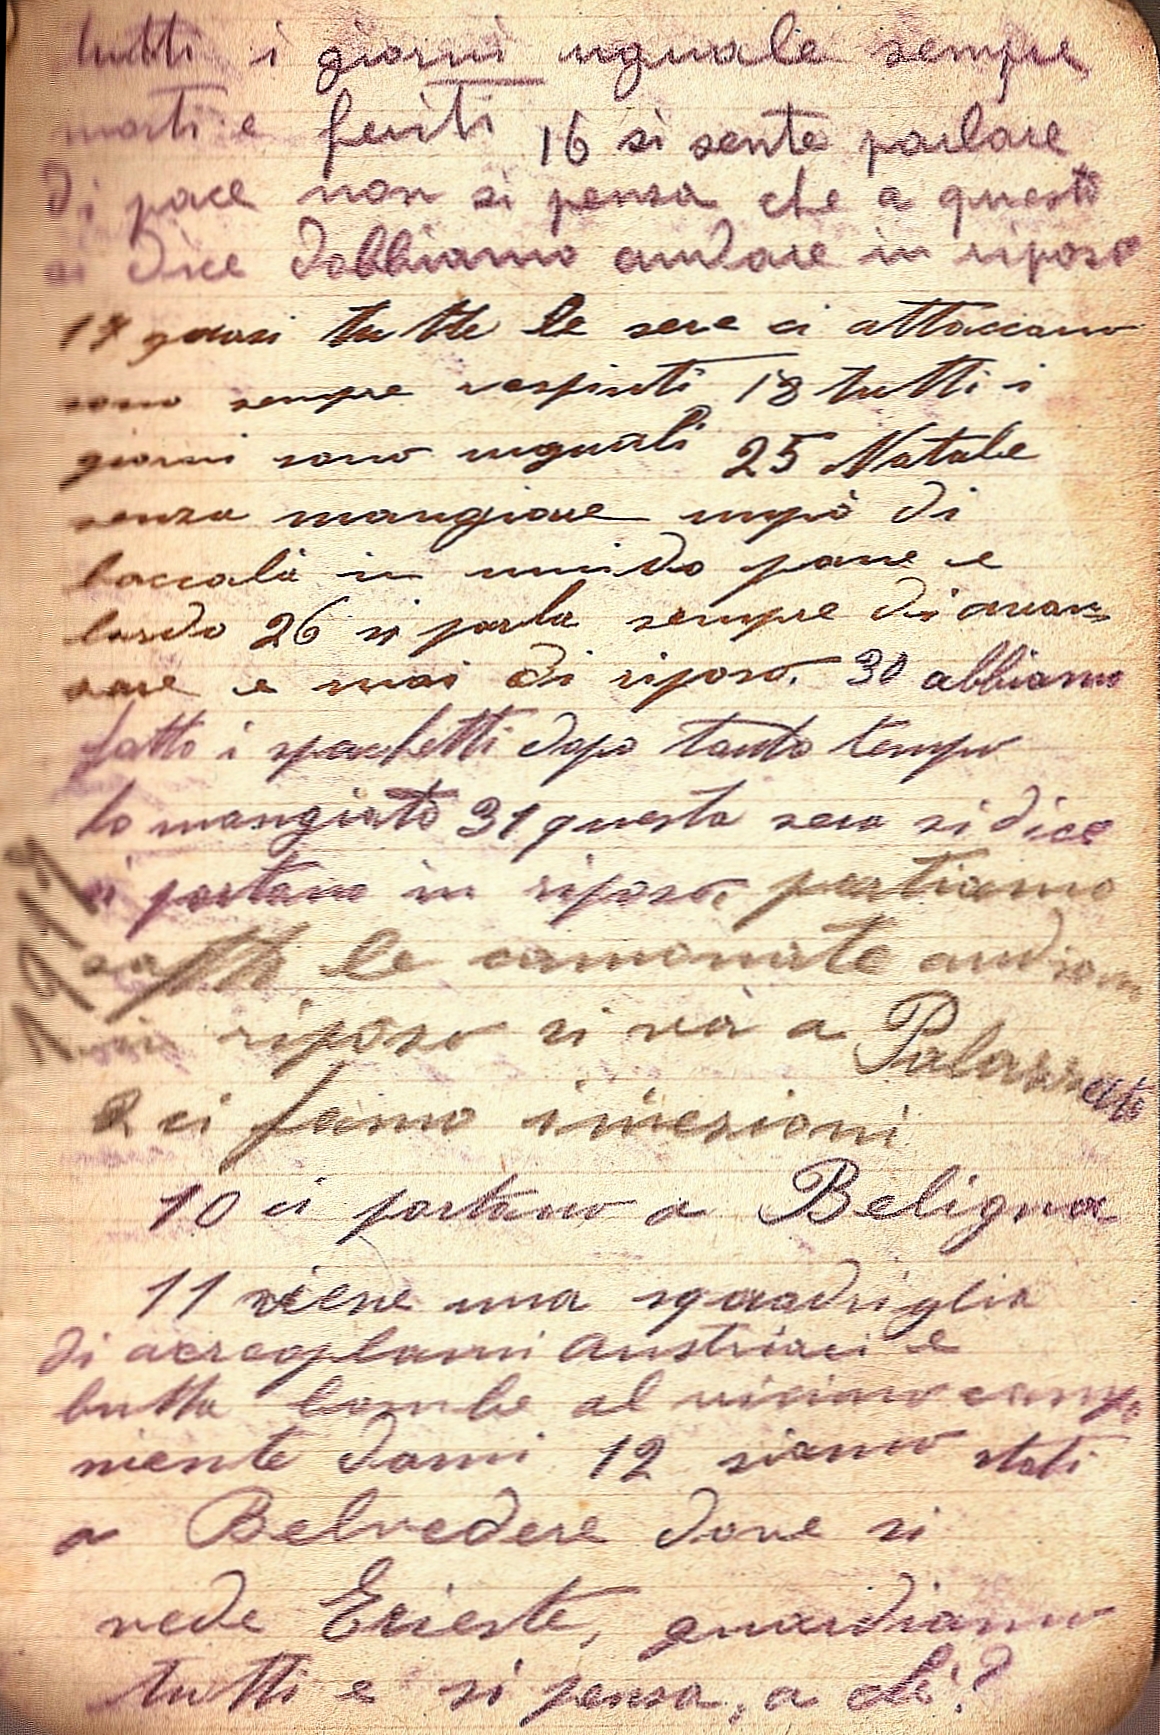 tutti i giorni uguale sempre
morti e feriti 16 si sente parlare
di pace non si pensa che a questo
si dice dobbiamo andare in riposo
17 quasi tutte le sere ci attaccano
sono sempre respinti 18 tutti i
giorni sono uguali 25 Natale
senza mangiare unpò di
baccalà in umido pane e
lardo 26 si parla sempre di avan-
zare e mai di riposo. 30 abbiamo
fatto i spachetti dopo tanto tempo
ho mangiato 31 questa sera si dice
ci portano in riposo, partiamo
sotto le canonate andiamo
in riposo si và a Palazzato
2 ci fanno iniezioni
10 ci portano a Beligna
11 viene una squadriglia
di aereoplani Austriaci e
butta bombe al vicino campo
niente danni 12 siamo stati
a Belvedere dove si
vede Trieste, guardiamo
tutti e si pensa, a chi?
1917